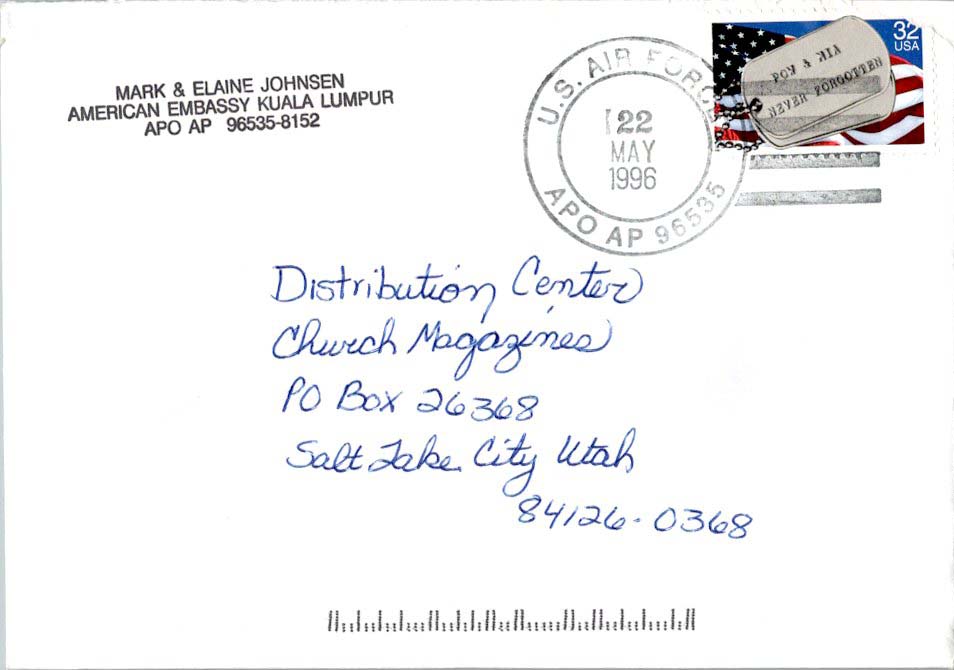 MARK & ELAINE JOHNSEN
AMERICAN EMBASSY KUALA LUMPUR
APO AP 96535-8152
U.S. AIR FORCE
22
MAY
1996
APO AP 96535
32
USA
POW & MIA
NEVER FORGOTTEN
Distribution Center
Church Magazines
PO Box 26368
Salt Lake City Utah
84126-0368